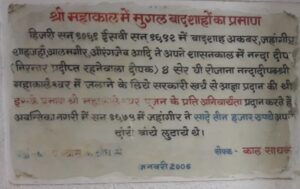 श्री महाकाल में मुगल बादशाहों का प्रमाण
हिजरी सन १०६१ ईसवी सन १६५१ में बादशाह अकबर, जहांगीर
शाहजहाँ आलमगीर औरंगजेब आदि ने अपने शासनकाल में नन्दा दीप
(निरन्तर प्रदीप्त रहनेवाला दीपक) ४ सेर घी रोजाना नन्दादीप श्री
महाकालेश्वर में जलाने के लिये सरकारी खर्च से आज्ञा प्रदान की थी
प्रमाण श्री पूजन के प्रति अनिवार्यता प्रदान करते हैं
अवन्तिका नगरी में सन १६१७ में जहांगीर ने साढे तीन हजार रुपये अपने
दोरो लुटाये थे।
जनवरी 2006